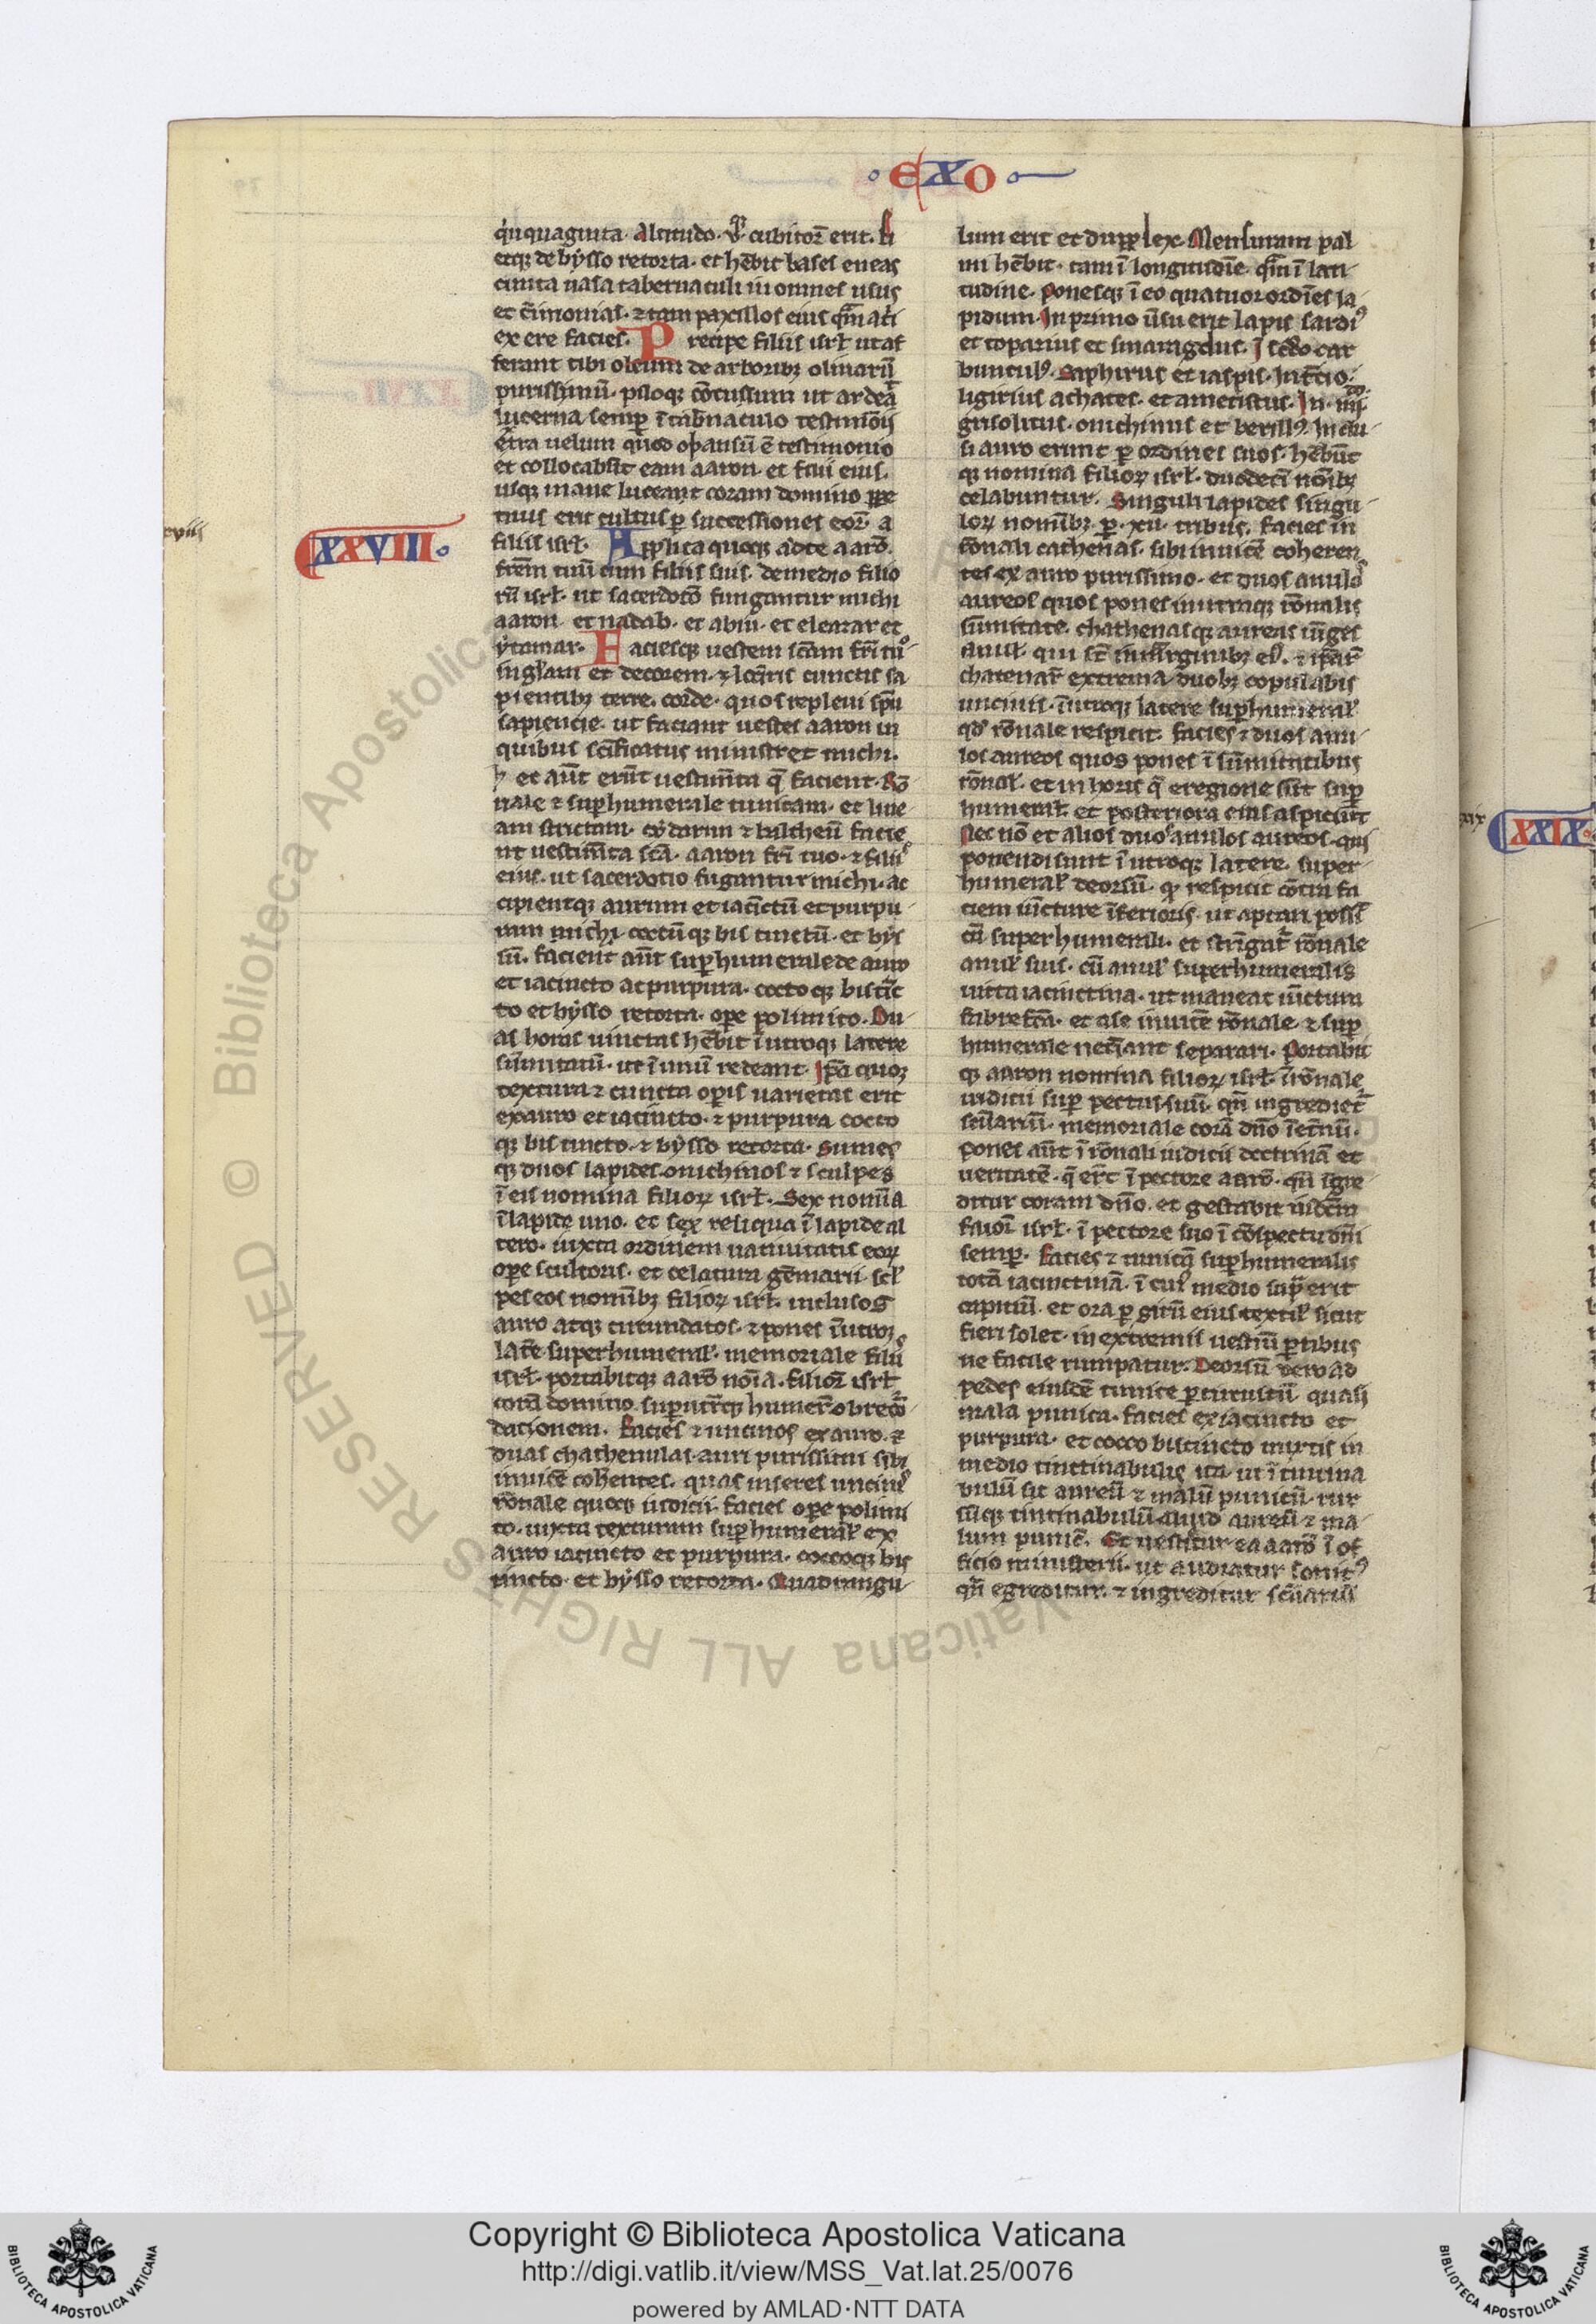 EXO
qͥnquaginta. Altitudo .vqͣ. cubitoꝝ erit. Fi
etqꝫ de bẏsso retorta. et hēbit bases eneas
cuncta uasa tabernaculi in omnes usus
et cͥimonias. ⁊ tam paxillos eius qͣm atͥi
ex ere facies. Precipe filiis isrł ut af
ferant tibi oleum de arboribꝫ oliuarū
purissimū. piloqꝫ cōtusum ut ardeat
lucerna semꝑ ī tab̄naculo testimōii
extra uelum quod opansū ē testimonio
et collocabūt eam aaron. et filii eius.
usqꝫ mane luceant coram domino ꝑpe
tuus erit cultus ꝑ successiones eoꝝ a
XXVIII.
filiis isrł. Applica quoqꝫ ad te aarō.
frēm tuū cum filiis suis. de medio filio
rū isrł. ut sacerdotō fungantur michi
aaron. et nadab. et abiu. et eleazar et
ẏtamar. Faciesqꝫ uestem scām frī tuo
in gl̄am et decorem. ⁊ loq̄ris cunctis sa
pientibꝫ terre. corde. quos repleui spū
sapiencie. ut faciant uestes aaron in
quibus scīficatus ministret michi.
h ec aūt erūt uestimīta q̄ facient. Rō
nale ⁊ suꝑhumerale tunicam. et line
am strictam. cẏdarim ⁊ baltheū facie
nt uestimīta scā. aaron frī tuo. ⁊ filiis
eius. ut sacerdotio fugantur michi. ac
cipientqꝫ aurum et iacīctū et purpu
ram michi. coctūqꝫ bis tinctū. et bẏs
sū. facient aūt suꝑhumerale de auro
et iacincto ac purpura. coctoqꝫ bis tīc
to et bẏsso retorta. oꝑe polimito. Du
as horas uinctas hēbit ī utroqꝫ latere
sūmitatū. ut ī unū redeant. Ipā quoqꝫ
textura ⁊ cuncta oꝑis uarietas erit
ex auro et iacincto. ⁊ purpura cocto
qꝫ bis tincto. ⁊ bẏsso retorta. Sumes
qꝫ duos lapides onichinos ⁊ sculpes
ī eis nomina filioꝝ isrł. Sex nomīa
ī lapide uno. et sex reliqua ī lapide al
tero. iuxta ordinem natiuitatis eoꝝ
oꝑe scultoris. et celatura gēmarii. scl̄
pes eos nomībꝫ filioꝝ isrł. inclusos
auro atqꝫ circundatos. ⁊ pones ī utroqꝫ
lat̄e superhumeral̄. memoriale filiis
isrł. portabitqꝫ aarō noīa. filioꝝ isrł
corā domino super utrūqꝫ humerō ob recor
dationem. Facies ⁊ uncinos ex auro. ⁊
duas chathenulas auri purissimi sibi
inuicē coh̄entes. quas inseres uncinis
rōnale quoqꝫ iudicii. facies oꝑe polimi
to. iuxta texturam suꝑhumeral̄ ex
auro iacincto et purpura. coccoqꝫ bis
tincto. et bẏsso retorta. Quadrangu
lum erit et dupplex. Mensuram pal
mi hēbit. tam ī longitudīe. qͣm ī lati
tudine. Ponesqꝫ ī eo quatuor ordīes la
pidum. In primo ūsu erit lapis sardiꝰ
et topazius et smaragdus. I scdo car
bunculꝰ. Saphirus et iaspis. In t̄cio.
ligirius achates. et ametistus. In .iiii.
grisolitus. onichinus et berillꝰ. Inclu
si auro erunt ꝑ ordines suos. hēbūt
qꝫ nomina filioꝝ isrł. duodecī noībꝫ
celabuntur. Singuli lapides singu
loꝝ nomībꝫ. ꝑ .xii. tribus. Facies in
rōnali cathenas. sibi inuicē coheren
tes ex auro purissimo. et duos anulos
aureos quos pones in utraqꝫ rōnalis
sūmitate. chathenasqꝫ aureas iūges
anul̄. qui st̄ in marginibꝫ eiꝰ. ⁊ ipaꝝ
chatenaꝝ extrema duobꝫ copulabis
uncinis. ī utroqꝫ latere suꝑhumeral̄
qd̄ rōnale respicit. facies ⁊ duos anu
los aureos quos pones ī sūmitatibus
rōnal̄. et in horis q̄ eregione sūt suꝑ
humeral̄. et posteriora eius aspiciūt
Nec nō et alios duos anulos aureos. qui
ponendi sunt ī utroqꝫ latere. super
humeral̄ deorsū. qͦ respicit cōtra fa
ciem iūcture īferioris. ut aptari possīt
cū superhumerali. et strīgat͛ rōnale
anul̄ suis. cū anul̄ superhumeralis
uitta iacinctina. ut maneat iūctura
fabrefcā. et a se inuicē rōnale ⁊ suꝑ
humerale neq̄ant separari. Portabit
qꝫ aaron nomina filioꝝ isrł. ī rōnale
iudicii suꝑ pectus suū. qn̄ ingrediet͛
sc̄uariū. memoriale corā dn̄o ī et̄nū.
Pones aūt ī rōnali iudicii doctrinā et
ueritatē. q̄ er̄t ī pectore aarō. qn̄ īgre
ditur coram dn̄o. et gestabit iudiciū
filioꝝ isrł. ī pectore suo ī cōspectu dn̄i
semꝑ. Facies ⁊ tunicā suꝑhumeralis
totā iacinctinā. ī cuiꝰ medio supͣ erit
capiciū. et ora ꝑ girū eius textil̄. sicut
fieri solet. in extremis uestiū ꝑtibus
ne facile rumpatur. Deorsū uero ad
pedes eiusdē tunice ꝑ circuitū quasi
mala punica. facies ex iacincto et
purpura. et cocco bis tincto mixtis in
medio tinctinabulis ita. ut ī tintina
bulū sit aureū ⁊ malū punicū. rur
sūqꝫ tintinabulū aliud aureū ⁊ ma
lum punic̄. Et uestietur ea aarō ī of
ficio ministerii. ut audiatur sonitꝰ
qn̄ egreditur. ⁊ ingreditur sc̄uariū
XXIX.
Copyright © Biblioteca Apostolica Vaticana
http://digi.vatlib.it/view/MSS_Vat.lat.25/0076
powered by AMLAD·NTT DATA
BIBLIOTECA APOSTOLICA VATICANA
BIBLIOTECA APOSTOLICA VATICANA
© Biblioteca Apostolica Vaticana ALL RIGHTS RESERVED